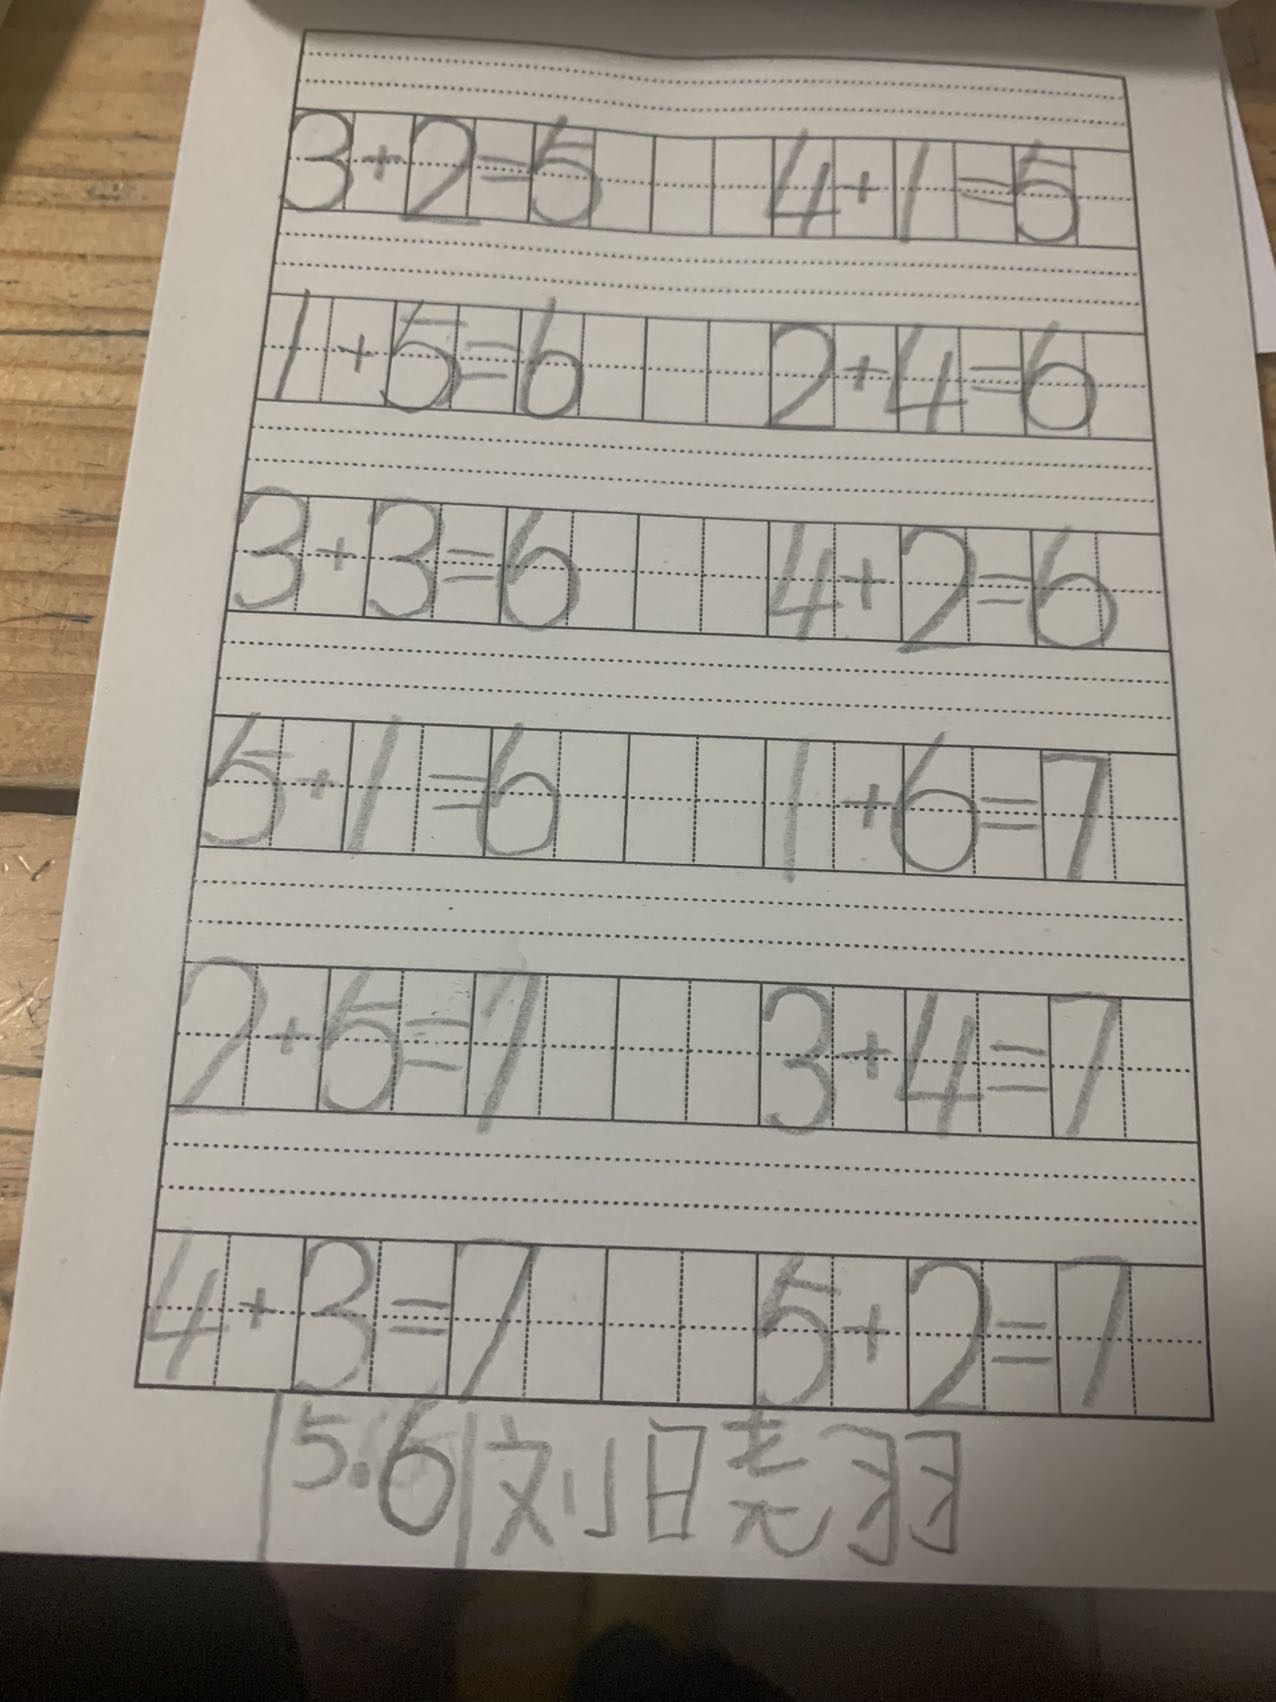 3+2=5 4+1=5
1+5=6 2+4=6
3+3=6 4+2=6
5+1=6 1+6=7
2+5=7 3+4=7
4+3=7 5+2=7
|5.6|刘日尧羽